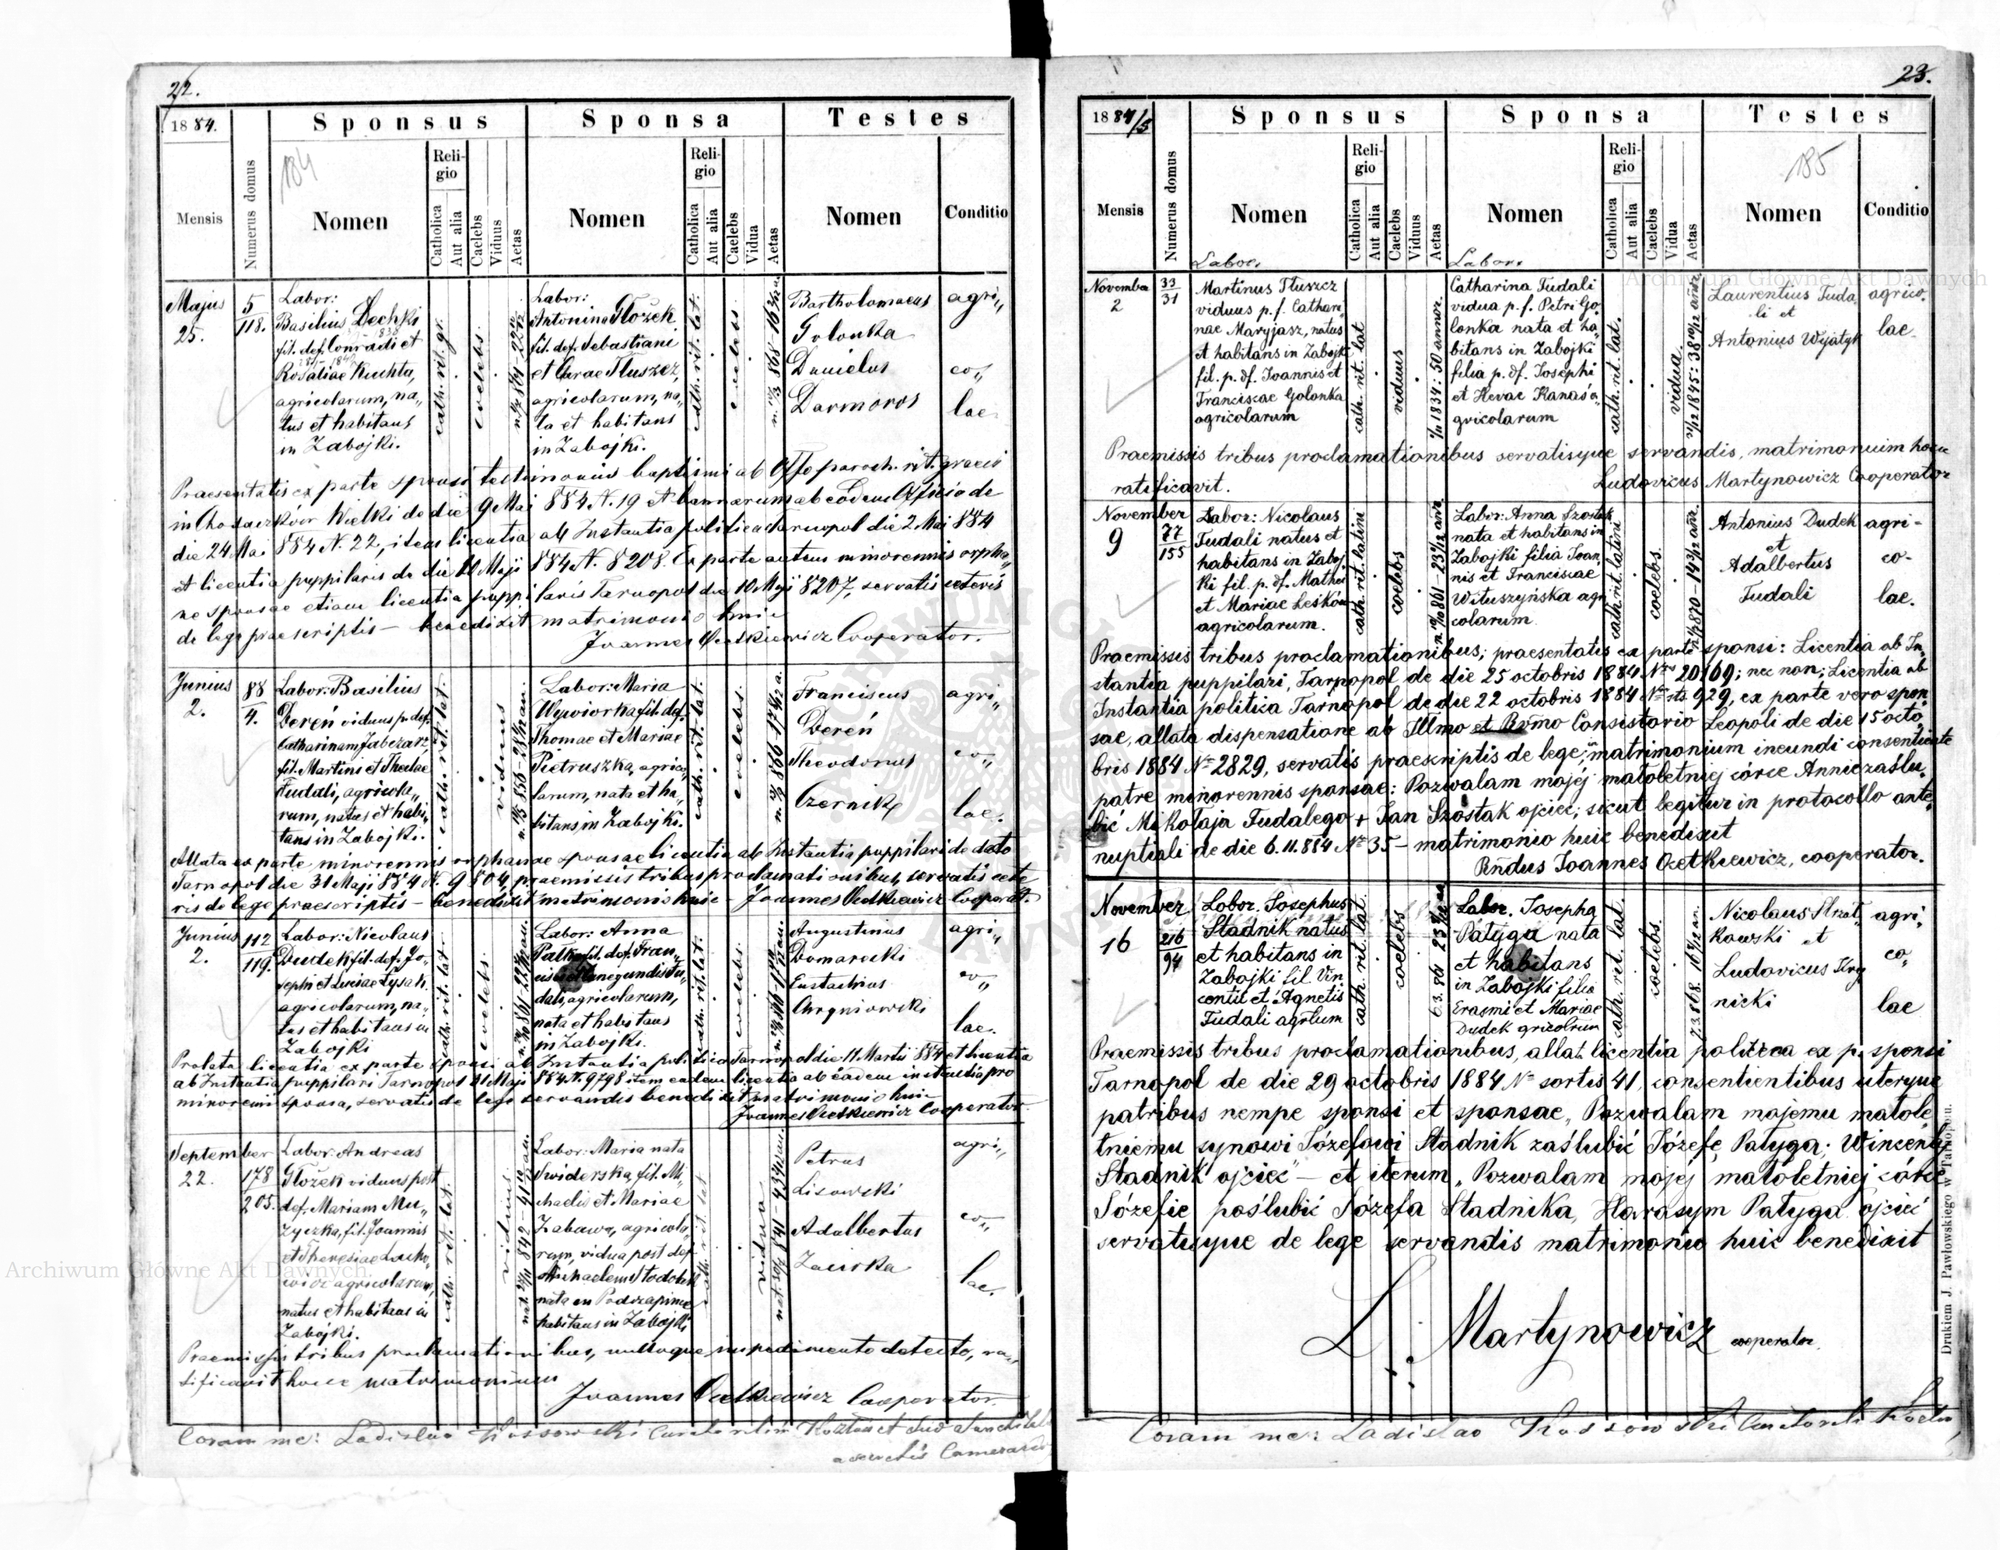 22.
1884.
Sponsus
Sponsa
Testes
184
Mensis
Numerus domus
Nomen
Religio
Catholica
Aut alia
Caelebs
Viduus
Aetas
Nomen
Religio
Catholica
Aut alia
Caelebs
Vidua
Aetas
Nomen
Conditio
Majus
25.
5
118.
Labor:
Basilius Dechki
fil. def. Conradi et
Rosaliae Kuchta,
agricolarum, na„
tus et habitans
in Zabojki.
cath. rit. gr.
coelebs.
Labor:
Antonina Tłożek
fil. def. Sebastiani
et Clarae Tluszcz,
agricolarum, na„
ta et habitans
in Zabojki.
cath. rit. lat.
coelebs.
Bartholomaeus
Golonka
Daniélus
Darmoros
agri„
co„
lae.
Praesentatis ex parte sponsi testimoniis baptismi ab Offo paroch. rit. graeci
in Chodaczków Wielki de die 9 Mai 884 N. 19 et bannorum ab eodem Officio de
die 24 Mai 884 N. 22, item licentia ab Instantia politica Tarnopol die 2 Mai 884
et licentia puppilaris de die Maji 884 N. 8208. Ex parte autem minorennis orpha„
nae sponsae etiam licentia puppilaris Tarnopol die 10 Maji 8207, servatis ceteris
de lege praescriptis – benedixit matrimonio huic
Joannes Ocetkiewicz Cooperator.
Junius
2.
88
4.
Labor: Basilius
Dereń viduus p. def.
Catharinam Jabczarz,
fil. Martini et Theclae
Tudali, agricola„
rum, natus et habi„
tans in Zabojki.
cath. rit. lat.
viduus
Labor: Maria
Wywiorka fil. def.
Thomae et Mariae
Pietruszka, agrico„
larum, nata et ha„
bitans in Zabojki.
cath. rit. lat.
coelebs.
Franciscus
Dereń
Theodorus
Czernik
agri„
co„
lae.
Allata ex parte minorennis orphanae sponsae licentia ab Instantia puppilari de dato
Tarnopol die 31 Maji 884 N. 9804, praemissis tribus proclamationibus, servatis cete
ris de lege praescriptis – benedixit matrimonio huic – Joannes Ocetkiewicz Cooperat.
Junius
2.
112
119.
Labor: Nicolaus
Dudek fil. def. Jo„
sephi et Luciae Łysak,
agricolarum, na„
tus et habitans in
Zabojki
cath. rit. lat.
coelebs.
Labor: Anna
fil. def. Fran„
cisci et Cunegundis Tu„
dali, agricolarum,
nata et habitans
in Zabojki.
cath. rit. lat.
coelebs.
Augustinus
Domaracki
Eustachius
Chrqniowski
agri„
co„
lae.
Prolata licentia ex parte sponsi ab Instantia politica Tarnopol die 11. Martii 884 et licentia
ab Instantia puppilari Tarnopol 31 Maji 884 N. 9798 item eadem licentia ab eadem instantia pro
minorenni sponsa, servatis de lege servandis benedixit matrimonio huic
Joannes Ocetkiewicz Cooperator
September
22.
178
205.
Labor: Andreas
Tłożek viduus post
def. Mariam Mu„
zyczka, fil. Joannis
et Theresiae Lacke„
wicz agricolarum,
natus et habitans in
Zabojki.
cath. rit. lat.
viduus
Labor: Maria nata
Swiderska, fil. Mi„
chaelis et Mariae
Zabawa, agricola„
rum, vidua post def.
Michaelem Stodolak
nata en Podczapince
habitans in Zabojki
cath. rit. lat
vidua
Petrus
Lisowski
Adalbertus
Zaiska
agri„
co„
lae.
Praemissis tribus proclamationibus, nulloque impedimento detecto, ra„
tificavit hocce matrimonium
Joannes Ocetkiewicz Cooperator.
Coram me: Ladislao Kossowski
23.
1884/5
Sponsus
Sponsa
Testes
185
Mensis
Numerus domus
Nomen
Religio
Catholica
Aut alia
Caelebs
Viduus
Aetas
Nomen
Religio
Catholica
Aut alia
Caelebs
Vidua
Aetas
Nomen
Conditio
Labor.
Labor.
Novembr.
2
33
31
Martinus Tłuszcz
viduus p. f. Cathari„
nae Maryjasz, natus
et habitans in Zabojki
fil. p. df. Joannis et
Franciscae Golonka
agricolarum
cath. rit. lat
viduus
1/11 1834: 50 annor.
Catharina Tudali
vidua p. f. Petri Go„
lonka nata et ha„
bitans in Zabojki
filia p. df. Josephi
et Hevae Kanas a„
gricolarum
cath. rit. lat.
vidua.
Laurentius Tuda
li et
Antonius Wyjatyk
agrico„
lae.
Praemissis tribus proclamationibus servatisque servandis, matrimonium hocce
ratificavit.
Ludovicus Martynowicz Cooperator
November
9
77
155
Labor: Nicolaus
Tudali natus et
habitans in Zaboj„
ki fil. p. df. Mathei
et Mariae Leśków
agricolarum.
cath. rit. latini
coelebs
Labor: Anna Szostak
nata et habitans in
Zabojki filia Joan„
nis et Franciscae
Wituszyńska agri
colarum.
cath. rit. latini
coelebs.
Antonius Dudek
et
Adalbertus
Tudali
agri-
co-
lae.
Praemissis tribus proclamationibus; praesentatis ex parte sponsi: Licentia ab In„
stantia puppilari, Tarnopol de die 25 octobris 1884 Nro 20169; nec non; Licentia ab
Instantia politica Tarnopol de die 22 octobris 1884 No sts 929, ex parte vero spon„
sae, allata dispensatione ab Illmo et Rvmo Consistorio Leopoli de die 15 octo„
bris 1884 No 2829, servatis praescriptis de lege, matrimonium ineundi consentiente
patre minorennis sponsae: Pozwalam mojéj małoletniéj córce Annie zaślu„
bić Mikołaja Tudalego + Jan Szostak ojciec; sicut legitur in protocollo ante„
nuptiali de die 6. 11. 884 No 35 – matrimonio huic benedixit
Rndus Joannes Ocetkiewicz, cooperator.
November
16
216
94
Labor. Josephus
Stadnik natus
et habitans in
Zabojki fil Vin
centii et Agnetis
Tudali agrlum
cath. rit. lat.
coelebs
Labor. Josepha
Patyga nata
et habitans
in Zabojki filia
Erasmi et Mariae
Dudek gricolrum
cath. rit. lat
coelebs.
Nicolaus Strzał„
kowski et
Ludovicus Kry
nicki
agri„
co„
lae
Praemissis tribus proclamationibus, allata licentia politica ex p. sponsi
Tarnopol de die 29 octobris 1884 No sortis 41, consentientibus uterque
patribus nempe sponsi et sponsae, „Pozwalam mojemu małole„
tniemu synowi Józefowi Stadnik zaślubić Józefę Patyga; Wincenty
Stadnik ojciec" – et iterum, „Pozwalam mojéj małoletniéj córce
Józefie poślubić Józefa Stadnika, Harasym Patyga ojciec
servatisque de lege servandis matrimonio huic benedixit
L. Martynowicz cooperator.
Coram me: Ladislao Kossowski
Drukiem J. Pawłowskiego w Tarnopolu.
Archiwum Główne Akt Dawnych
Archiwum Główne Akt Dawnych